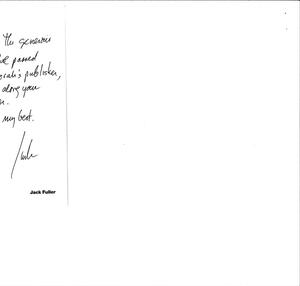 The generous
passed
publisher,
along your
my best.
Jack
Jack Fuller